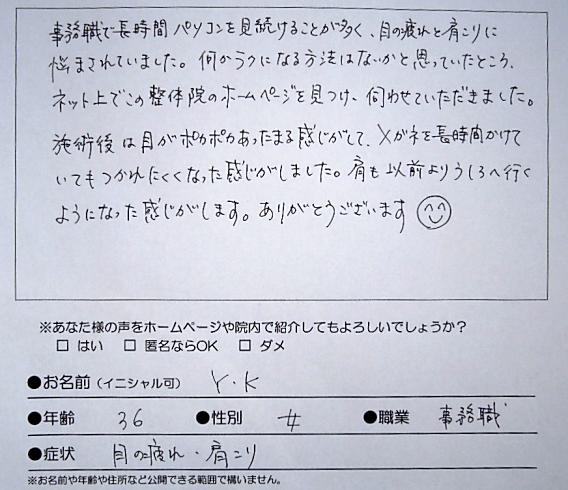 事務職で長時間パソコンを見続けることが多く、目の疲れと肩こりに
悩まされていました。何かラクになる方法はないかと思っていたところ、
ネット上でこの整体院のホームページを見つけ、伺わせていただきました。
施術後は目がポカポカあったまる感じがして、メガネを長時間かけて
いてもつかれにくくなった感じがしました。肩も以前よりうしろへ行く
ようになった感じがします。ありがとうございます
※あなた様の声をホームページや院内で紹介してもよろしいでしょうか？
□ はい □ 匿名ならOK □ ダメ
●お名前（イニシャル可） Y・K
●年齢 36 ●性別 女 ●職業 事務職
●症状 目の疲れ・肩こり
※お名前や年齢や住所など公開できる範囲で構いません。